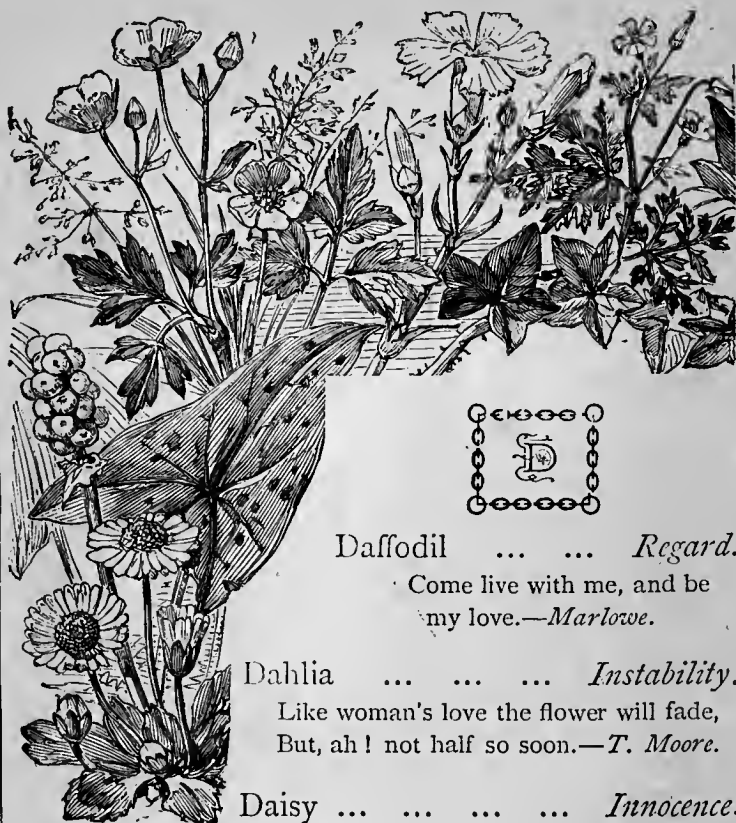 D
Daffodil ... ... Regard.
Come live with me, and be
my love.—Marlowe.
Dahlia ... ... ... Instability.
Like woman's love the flower will fade,
But, ah! not half so soon.—T. Moore.
Daisy ... ... ... ... Innocence.